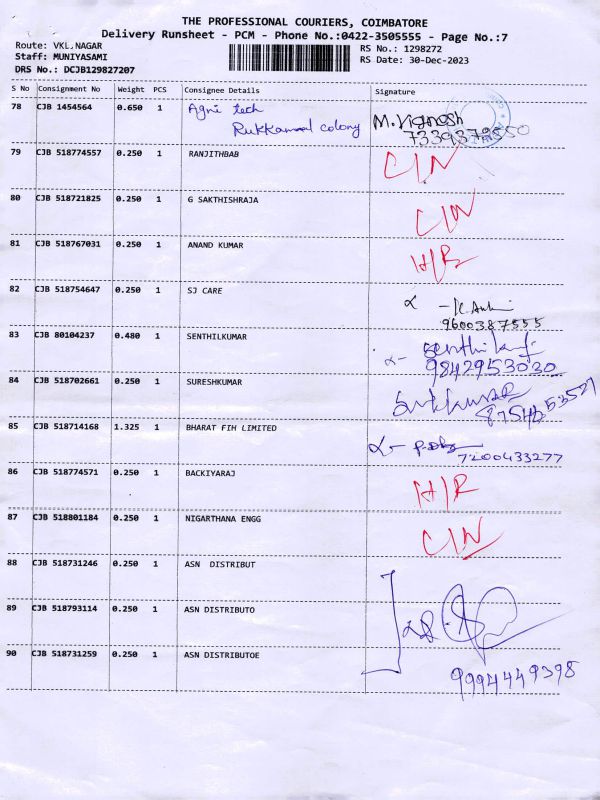 THE PROFESSIONAL COURIERS, COIMBATORE
Delivery Runsheet - PCM - Phone No.:0422-3505555 - Page No.:7
Route: VKL.NAGAR RS No.: 1298272
Staff: MUNIYASAMI RS Date: 30-Dec-2023
DRS No.: DCJB129827207
S No Consignment No Weight PCS Consignee Details Signature
78 CJB 1454564 0.650 1 Agni tech M. Vignesh
Rukkammal colony 7339379550
79 CJB 518774557 0.250 1 RANJITHBAB C/N
80 CJB 518721825 0.250 1 G SAKTHISHRAJA C/N
81 CJB 518767031 0.250 1 ANAND KUMAR H/R
82 CJB 518754647 0.250 1 SJ CARE
9600387555
83 CJB 80104237 0.480 1 SENTHILKUMAR
9842953030
84 CJB 518702661 0.250 1 SURESHKUMAR
85 CJB 518714168 1.325 1 BHARAT FIH LIMITED
7200433277
86 CJB 518774571 0.250 1 BACKIYARAJ H/R
87 CJB 518801184 0.250 1 NIGARTHANA ENGG C/N
88 CJB 518731246 0.250 1 ASN DISTRIBUT
89 CJB 518793114 0.250 1 ASN DISTRIBUTO
90 CJB 518731259 0.250 1 ASN DISTRIBUTOE
9994449398